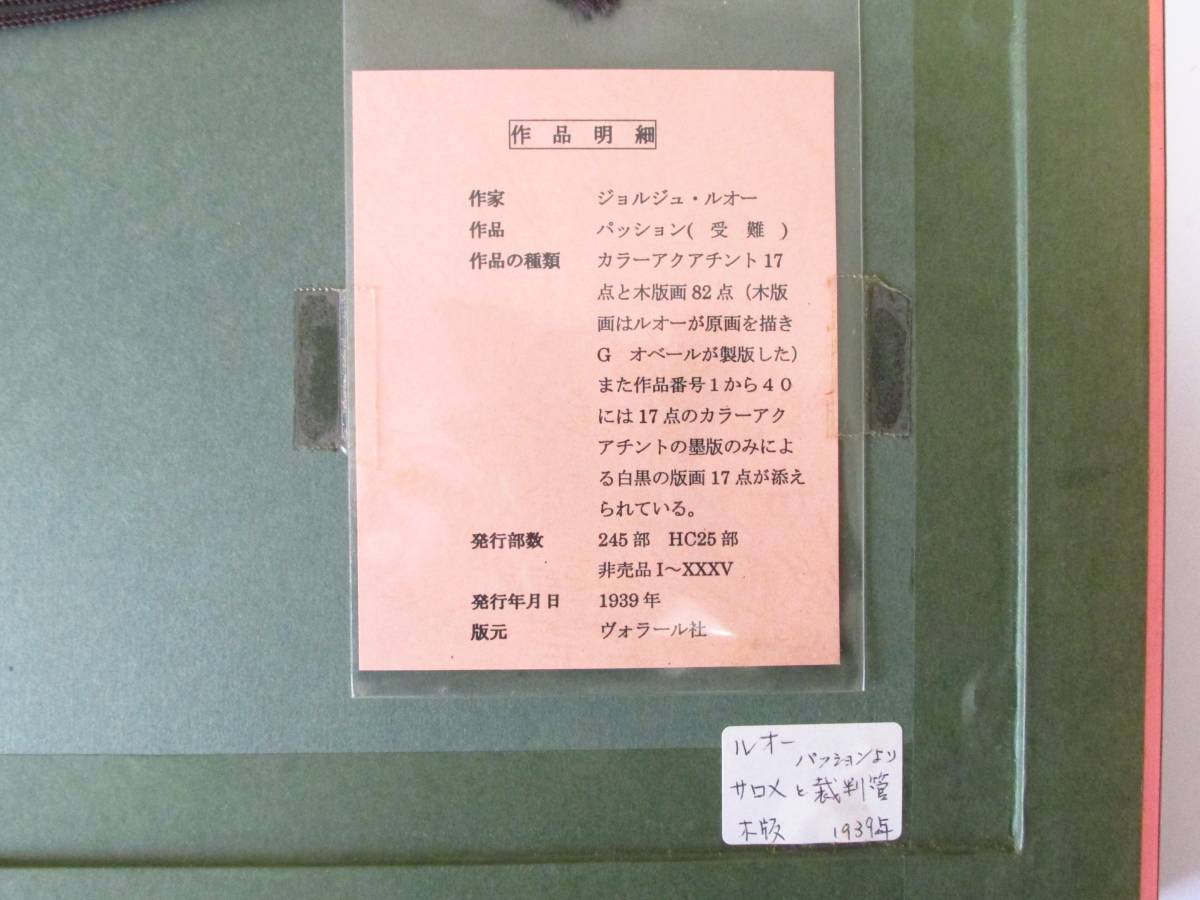 作品明細
作家 ジョルジュ・ルオー
作品 パッション( 受 難 )
作品の種類 カラーアクアチント17
点と木版画82点（木版
画はルオーが原画を描き
G オベールが製版した）
また作品番号１から４０
には17点のカラーアク
アチントの墨版のみによ
る白黒の版画17点が添え
られている。
発行部数 245部 HC25部
非売品I～XXXV
発行年月日 1939年
版元 ヴォラール社
ルオー
パッションより
サロメと裁判管
木版 1939年